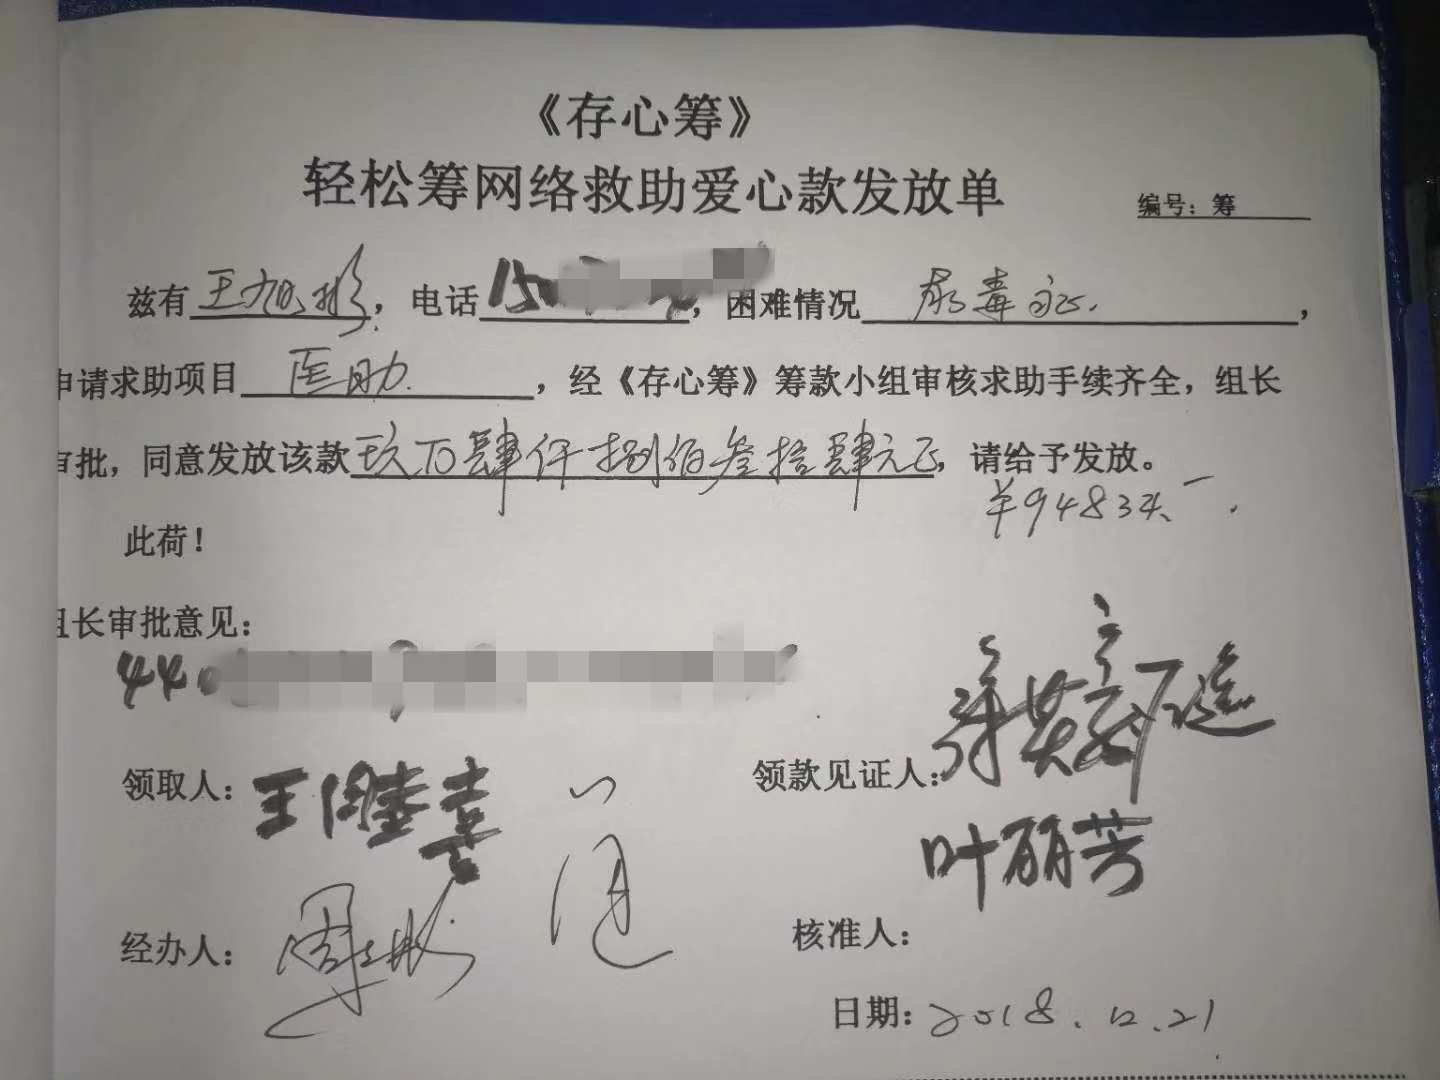 《存心筹》
轻松筹网络救助爱心款发放单
编号：筹
兹有王旭彬，电话15，困难情况尿毒症.，
申请求助项目医助.，经《存心筹》筹款小组审核求助手续齐全，组长
审批，同意发放该款玖万肆仟捌佰叁拾肆元正，请给予发放。
¥94834
此荷！
组长审批意见：
440
领取人：王陆喜
领款见证人：
叶丽芳
经办人：
核准人：
日期：2018.12.21